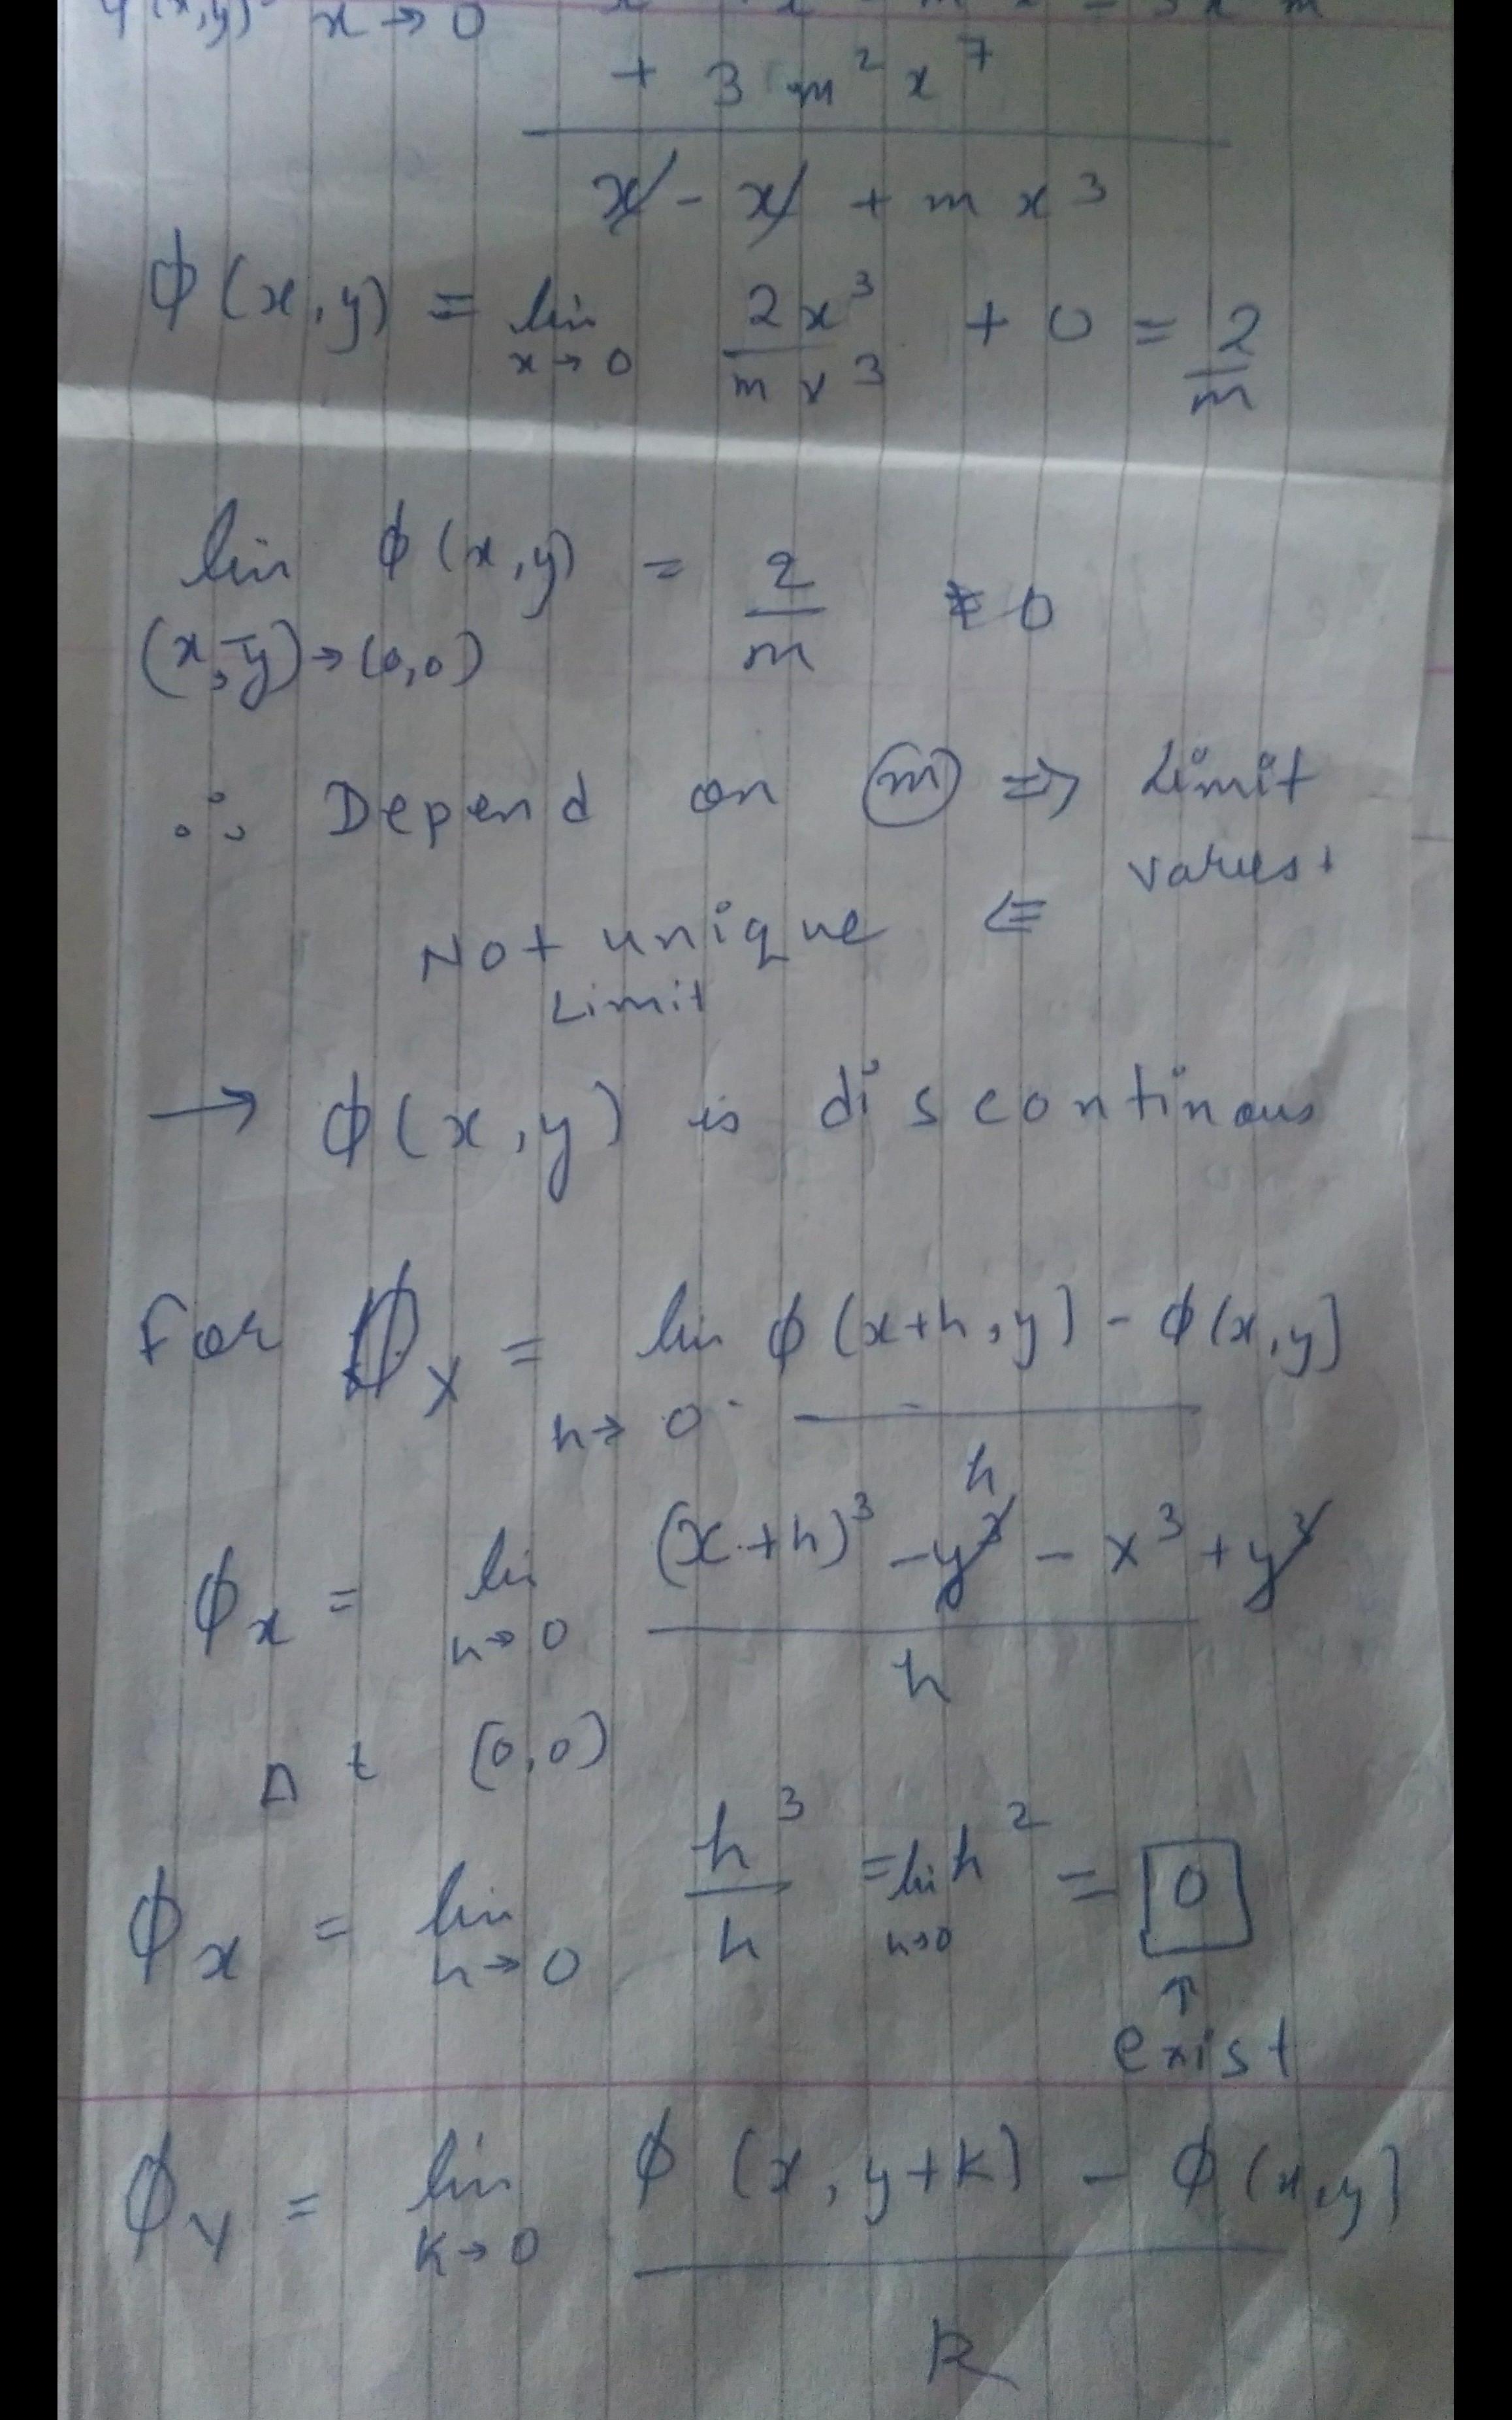 φ(x,y) x→0
+ 3 m² x⁷
x - x + m x³
φ(x,y) = lim x→0 2x³/mx³ + 0 = 2/m
lim (x,y)→(0,0) φ(x,y) = 2/m ≠ 0
∴ Depend on m ⇒ Limit
varies.
Not unique ⇐
Limit
→ φ(x,y) is discontinous
For φx = lim h→0 φ(x+h,y) - φ(x,y)
h
φx = lim h→0 (x+h)³ - y³ - x³ + y³
h
At (0,0)
φx = lim h→0 h³/h = lim h→0 h² = 0
↑
exist
φy = lim k→0 φ(x, y+k) - φ(x,y)
k